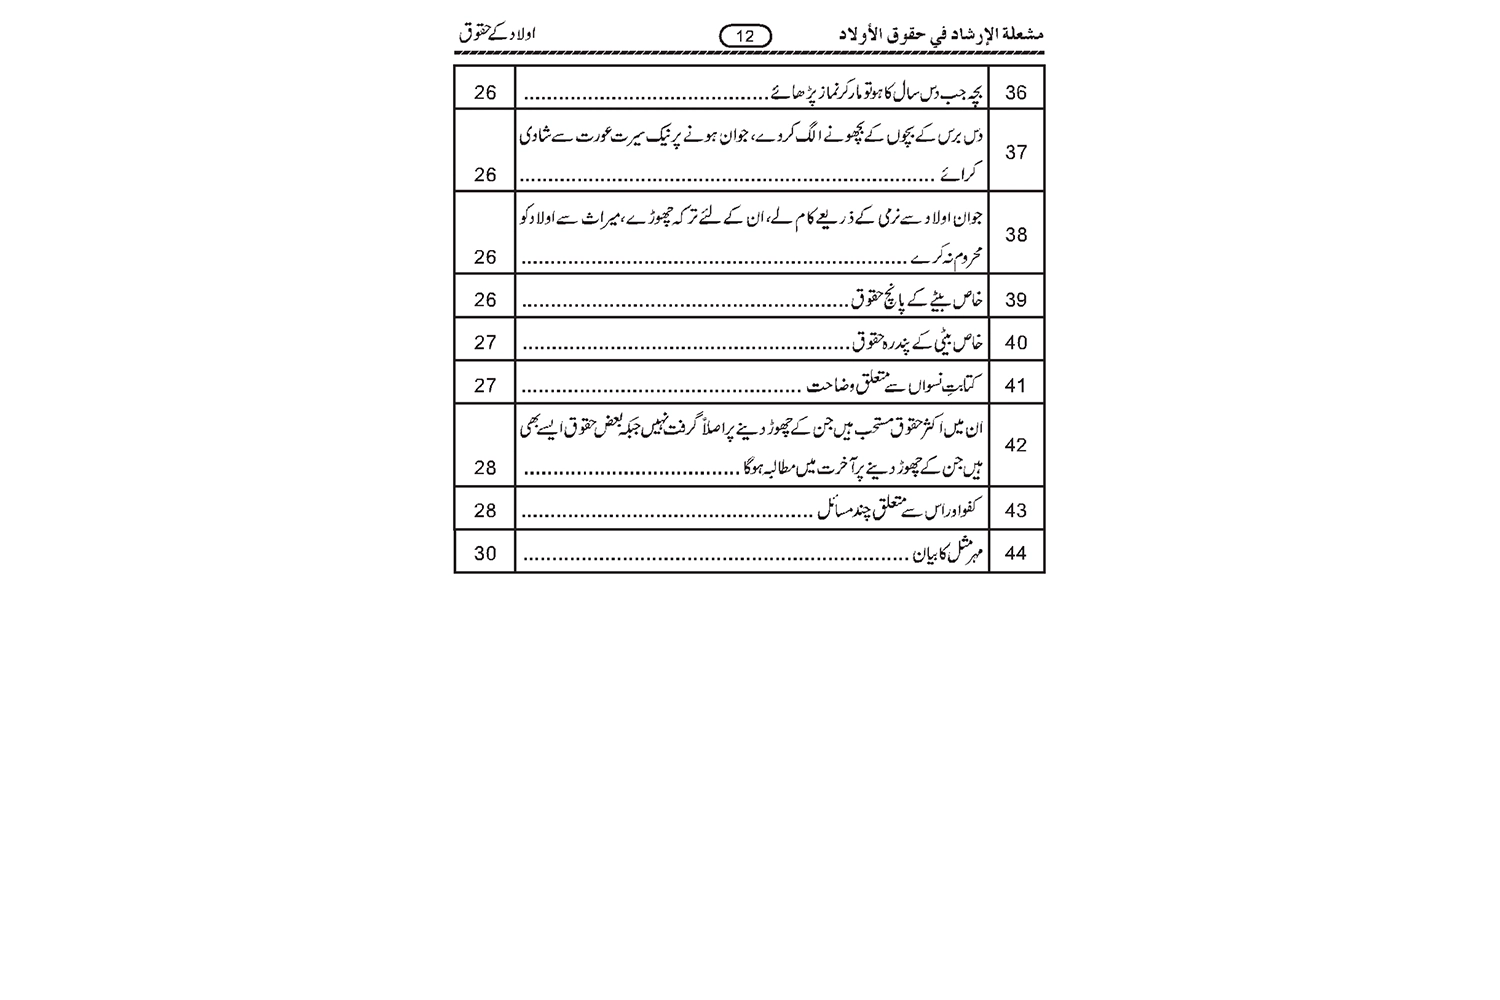 مشعلة الإرشاد في حقوق الأولاد 12 اولاد کے حقوق
36 بچہ جب دس سال کا ہو تو مار کر نماز پڑھائے........................................... 26
37 دس برس کے بچوں کے بچھونے الگ کر دے، جوان ہونے پر نیک سیرت عورت سے شادی
کرائے ........................................................................ 26
38 جوان اولاد سے نرمی کے ذریعے کام لے، ان کے لئے ترکہ چھوڑے، میراث سے اولاد کو
محروم نہ کرے ................................................................... 26
39 خاص بیٹے کے پانچ حقوق......................................................... 26
40 خاص بیٹی کے پندرہ حقوق......................................................... 27
41 کتابتِ نسواں سے متعلق وضاحت ................................................. 27
42 ان میں اکثر حقوق مستحب ہیں جن کے چھوڑ دینے پر اصلاً گرفت نہیں جبکہ بعض حقوق ایسے بھی
ہیں جن کے چھوڑ دینے پر آخرت میں مطالبہ ہوگا ..................................... 28
43 کفو اور اس سے متعلق چند مسائل ................................................... 28
44 مہر مثل کا بیان ................................................................... 30